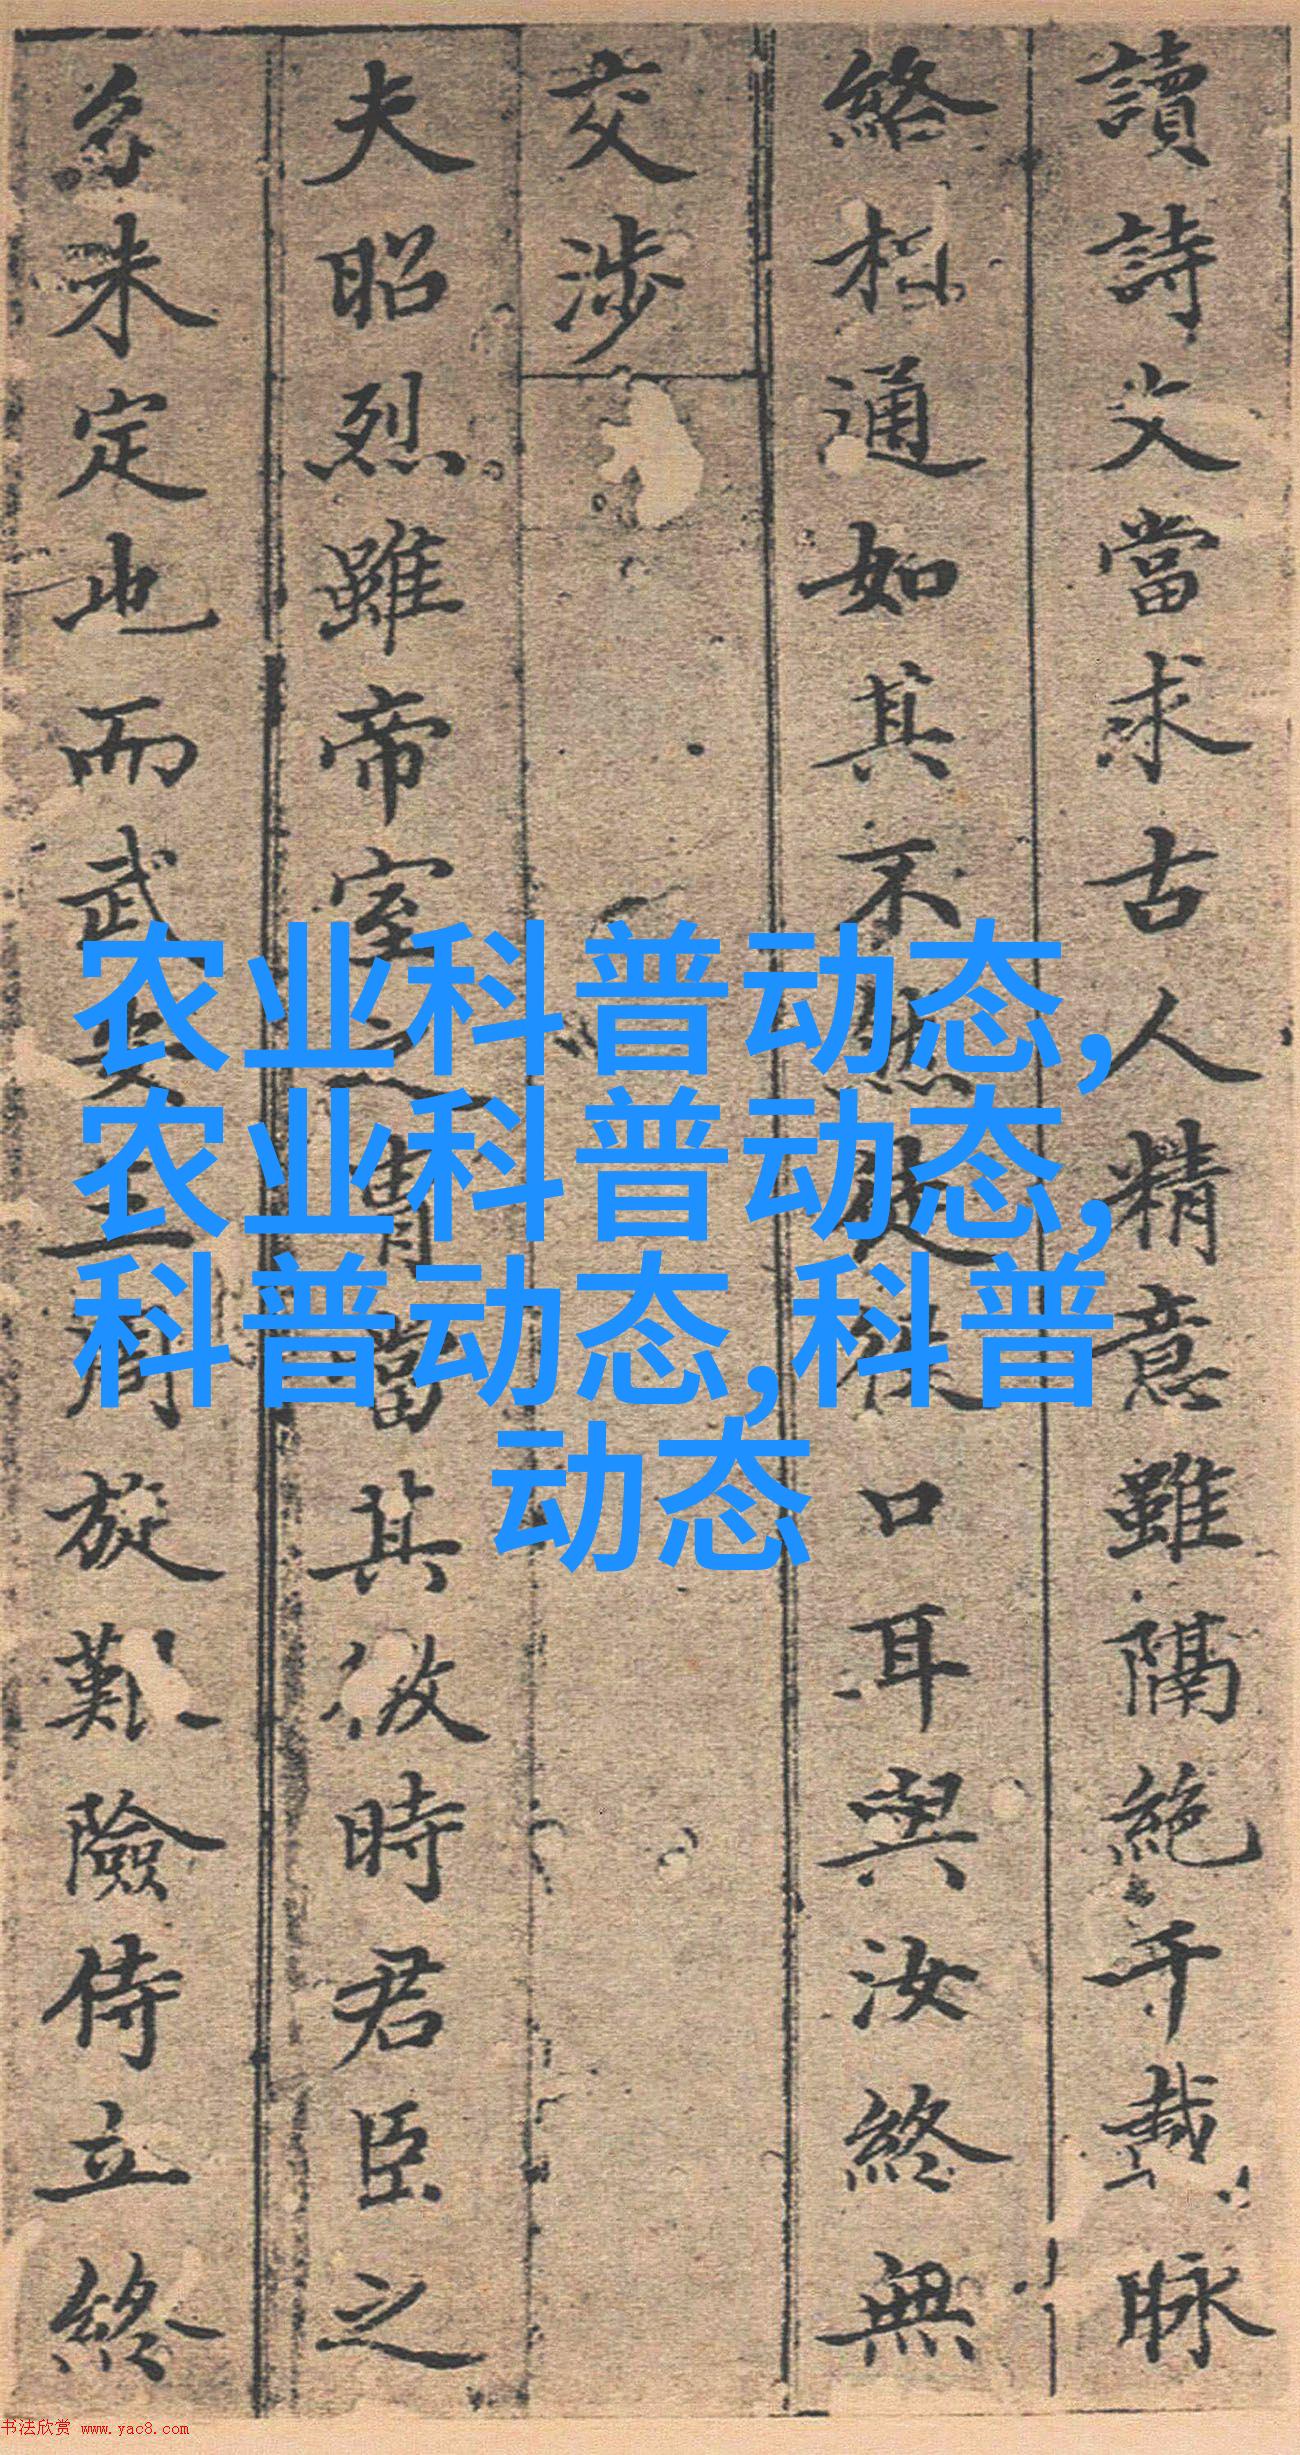 讀詩文當求古人精意雖隔絶千載脉
絡相通如其不然徒口耳與汝終無
交涉
夫昭烈雖帝室之胄當其微時君臣之
分未定也而武安王周旋險侍立終
农业科普动态,
农业科普动态,
科普动态,科普
动态
书法欣赏 www.yac8.com